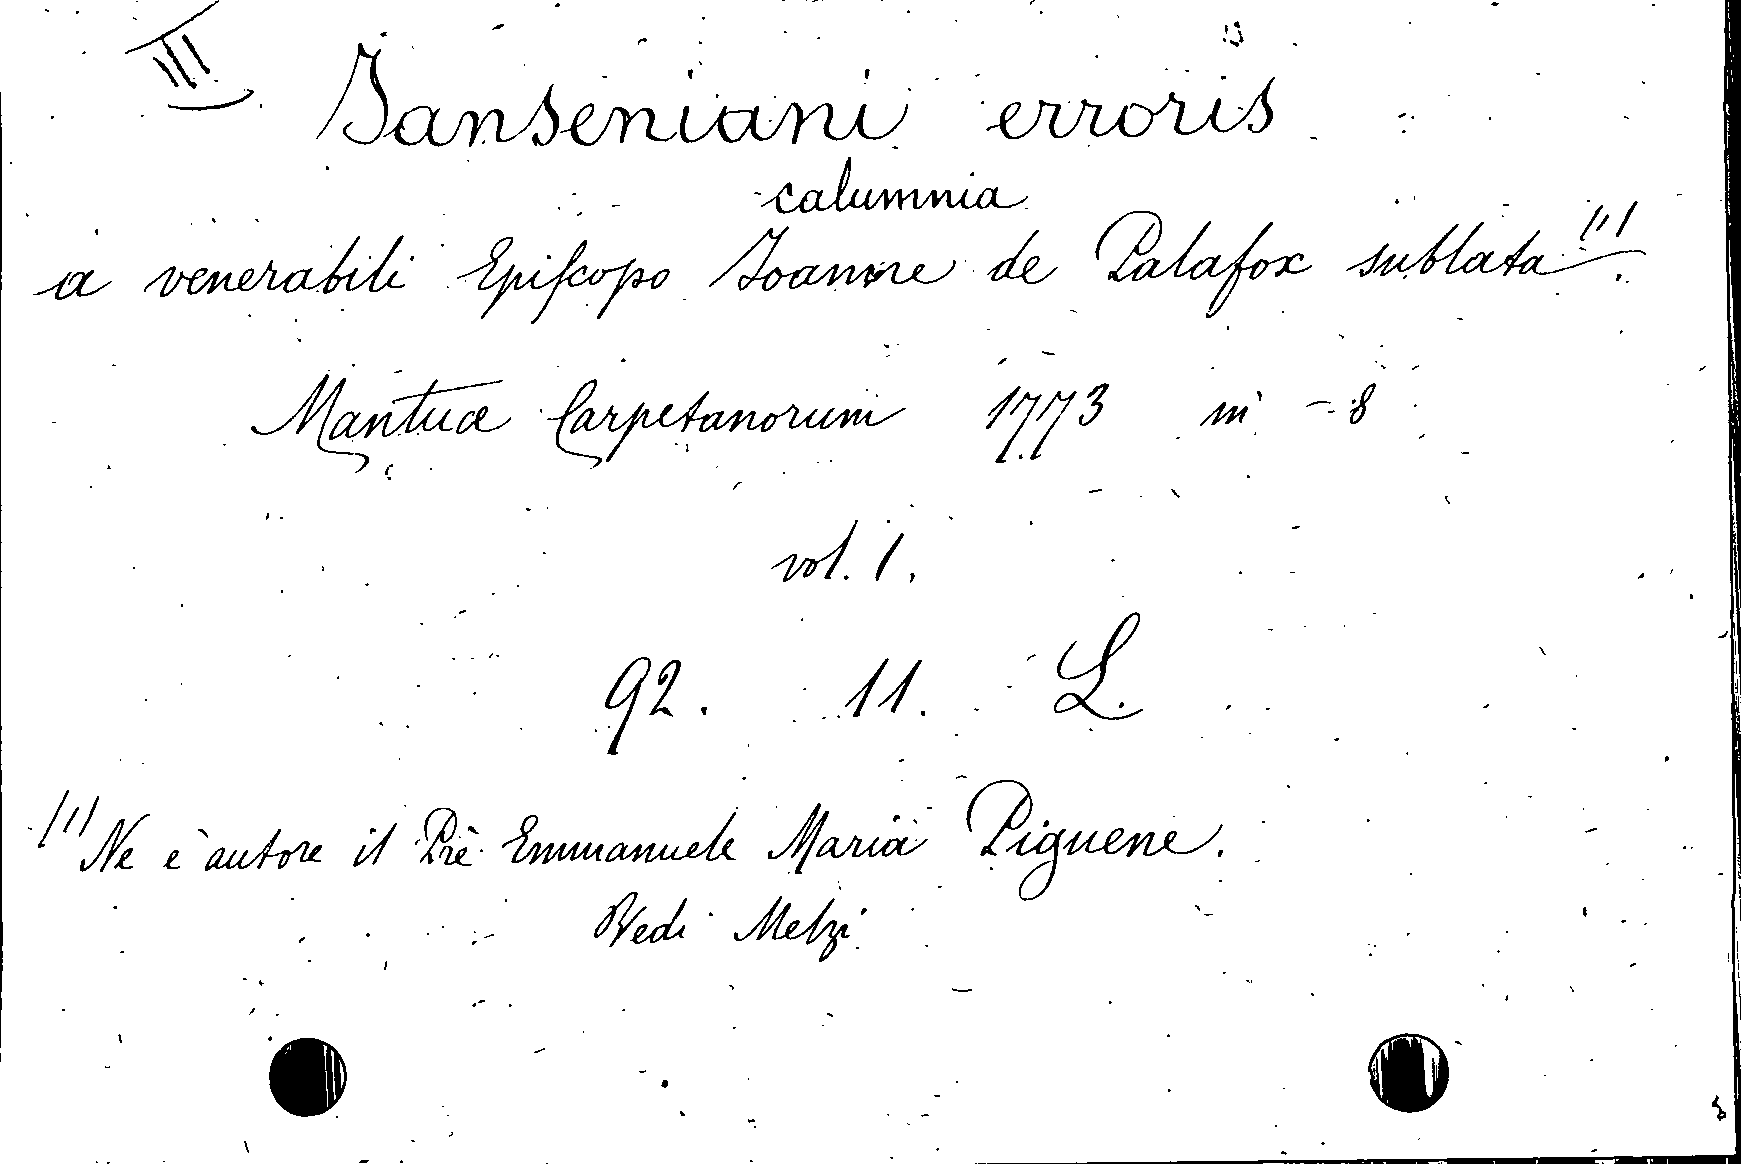 III
Janseniani erroris
calumnia
a venerabili Epiſcopo Joanne de Palafox sublata (1).
Mantuæ Carpetanorum 1773 in - 8
vol. 1.
92. 11. L.
(1) Ne è autore il Prè Emmanuele Maria Piguene.
Vedi Melzi